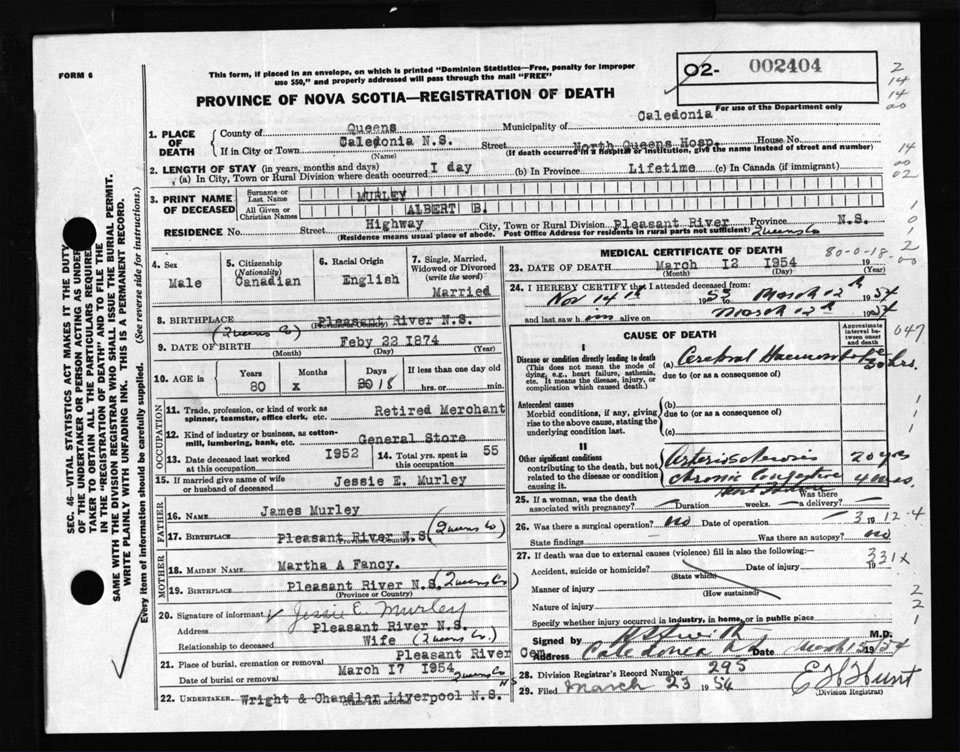 FORM 6
This form, if placed in an envelope, on which is printed "Dominion Statistics—Free, penalty for improper
use $50," and properly addressed will pass through the mail "FREE"
O2- 002404
For use of the Department only
PROVINCE OF NOVA SCOTIA—REGISTRATION OF DEATH
1. PLACE OF DEATH
County of Queens Municipality of Caledonia
If in City or Town Caledonia N.S. Street North Queens Hosp. House No.
(Name) (If death occurred in a hospital or institution, give the name instead of street and number)
2. LENGTH OF STAY (in years, months and days)
(a) In City, Town or Rural Division where death occurred 1 day (b) In Province Lifetime (c) In Canada (if immigrant)
3. PRINT NAME OF DECEASED
Surname or Last Name MURLEY
All Given or Christian Names ALBERT B.
RESIDENCE No. Street Highway City, Town or Rural Division Pleasant River Province N.S.
(Residence means usual place of abode. Post Office Address for residents in rural parts not sufficient) Queens Co
4. Sex
Male
5. Citizenship (Nationality)
Canadian
6. Racial Origin
English
7. Single, Married, Widowed or Divorced (write the word)
Married
8. BIRTHPLACE Pleasant River N.S.
(Province or Country)
(Queens Co)
9. DATE OF BIRTH Feby 22 1874
(Month) (Day) (Year)
10. AGE in
Years 80
Months x
Days 20 18
If less than one day old
hrs. or min.
OCCUPATION
11. Trade, profession, or kind of work as spinner, teamster, office clerk, etc. Retired Merchant
12. Kind of industry or business, as cotton-mill, lumbering, bank, etc. General Store
13. Date deceased last worked at this occupation 1952
14. Total yrs. spent in this occupation 55
15. If married give name of wife or husband of deceased Jessie E. Murley
FATHER
16. NAME James Murley
17. BIRTHPLACE Pleasant River N.S (Queens Co)
(Province or Country)
MOTHER
18. MAIDEN NAME Martha A Fancy.
19. BIRTHPLACE Pleasant River N.S. (Queens Co)
(Province or Country)
20. Signature of informant Jessie E. Murley
Address Pleasant River N.S.
Relationship to deceased Wife (Queens Co.)
21. Place of burial, cremation or removal Pleasant River Cem.
Date of burial or removal March 17 1954 Queens Co NS
22. UNDERTAKER Wright & Chandler Liverpool N.S.
(Name and address)
MEDICAL CERTIFICATE OF DEATH
80-0-18-
23. DATE OF DEATH March 12 1954 19
(Month) (Day) (Year)
24. I HEREBY CERTIFY that I attended deceased from:
Nov 14th 19 to March 12th 1954
and last saw him alive on March 12th 1954
CAUSE OF DEATH
Approximate interval between onset and death
I
Disease or condition directly leading to death
(This does not mean the mode of dying, e.g., heart failure, asthenia, etc. It means the disease, injury, or complication which caused death.)
(a) Cerebral Haemorrhage hrs.
due to (or as a consequence of)
Antecedent causes
Morbid conditions, if any, giving rise to the above cause, stating the underlying condition last.
(b)
due to (or as a consequence of)
(c)
II
Other significant conditions contributing to the death, but not related to the disease or condition causing it.
Arteriosclerosis 20 yrs
Chronic Congestive
25. If a woman, was the death associated with pregnancy? Duration weeks. Was there a delivery?
26. Was there a surgical operation? no Date of operation 19
State findings Was there an autopsy? no
27. If death was due to external causes (violence) fill in also the following:
Accident, suicide or homicide? Date of injury 19
(State which)
Manner of injury
(How sustained)
Nature of injury
Specify whether injury occurred in industry, in home, or in public place
Signed by M.D.
Address Caledonia Date 54
28. Division Registrar's Record Number 295
29. Filed March 23 1954 E H Hunt
(Division Registrar)
331X
047
SEC. 46—VITAL STATISTICS ACT MAKES IT THE DUTY
OF THE UNDERTAKER OR PERSON ACTING AS UNDER
TAKER TO OBTAIN ALL THE PARTICULARS REQUIRE
IN THE "REGISTRATION OF DEATH" AND TO FILE THE
SAME WITH THE DIVISION REGISTRAR WHO SHALL ISSUE THE BURIAL PERMIT.
WRITE PLAINLY WITH UNFADING INK. THIS IS A PERMANENT RECORD.
Every item of information should be carefully supplied. (See reverse side for instructions.)